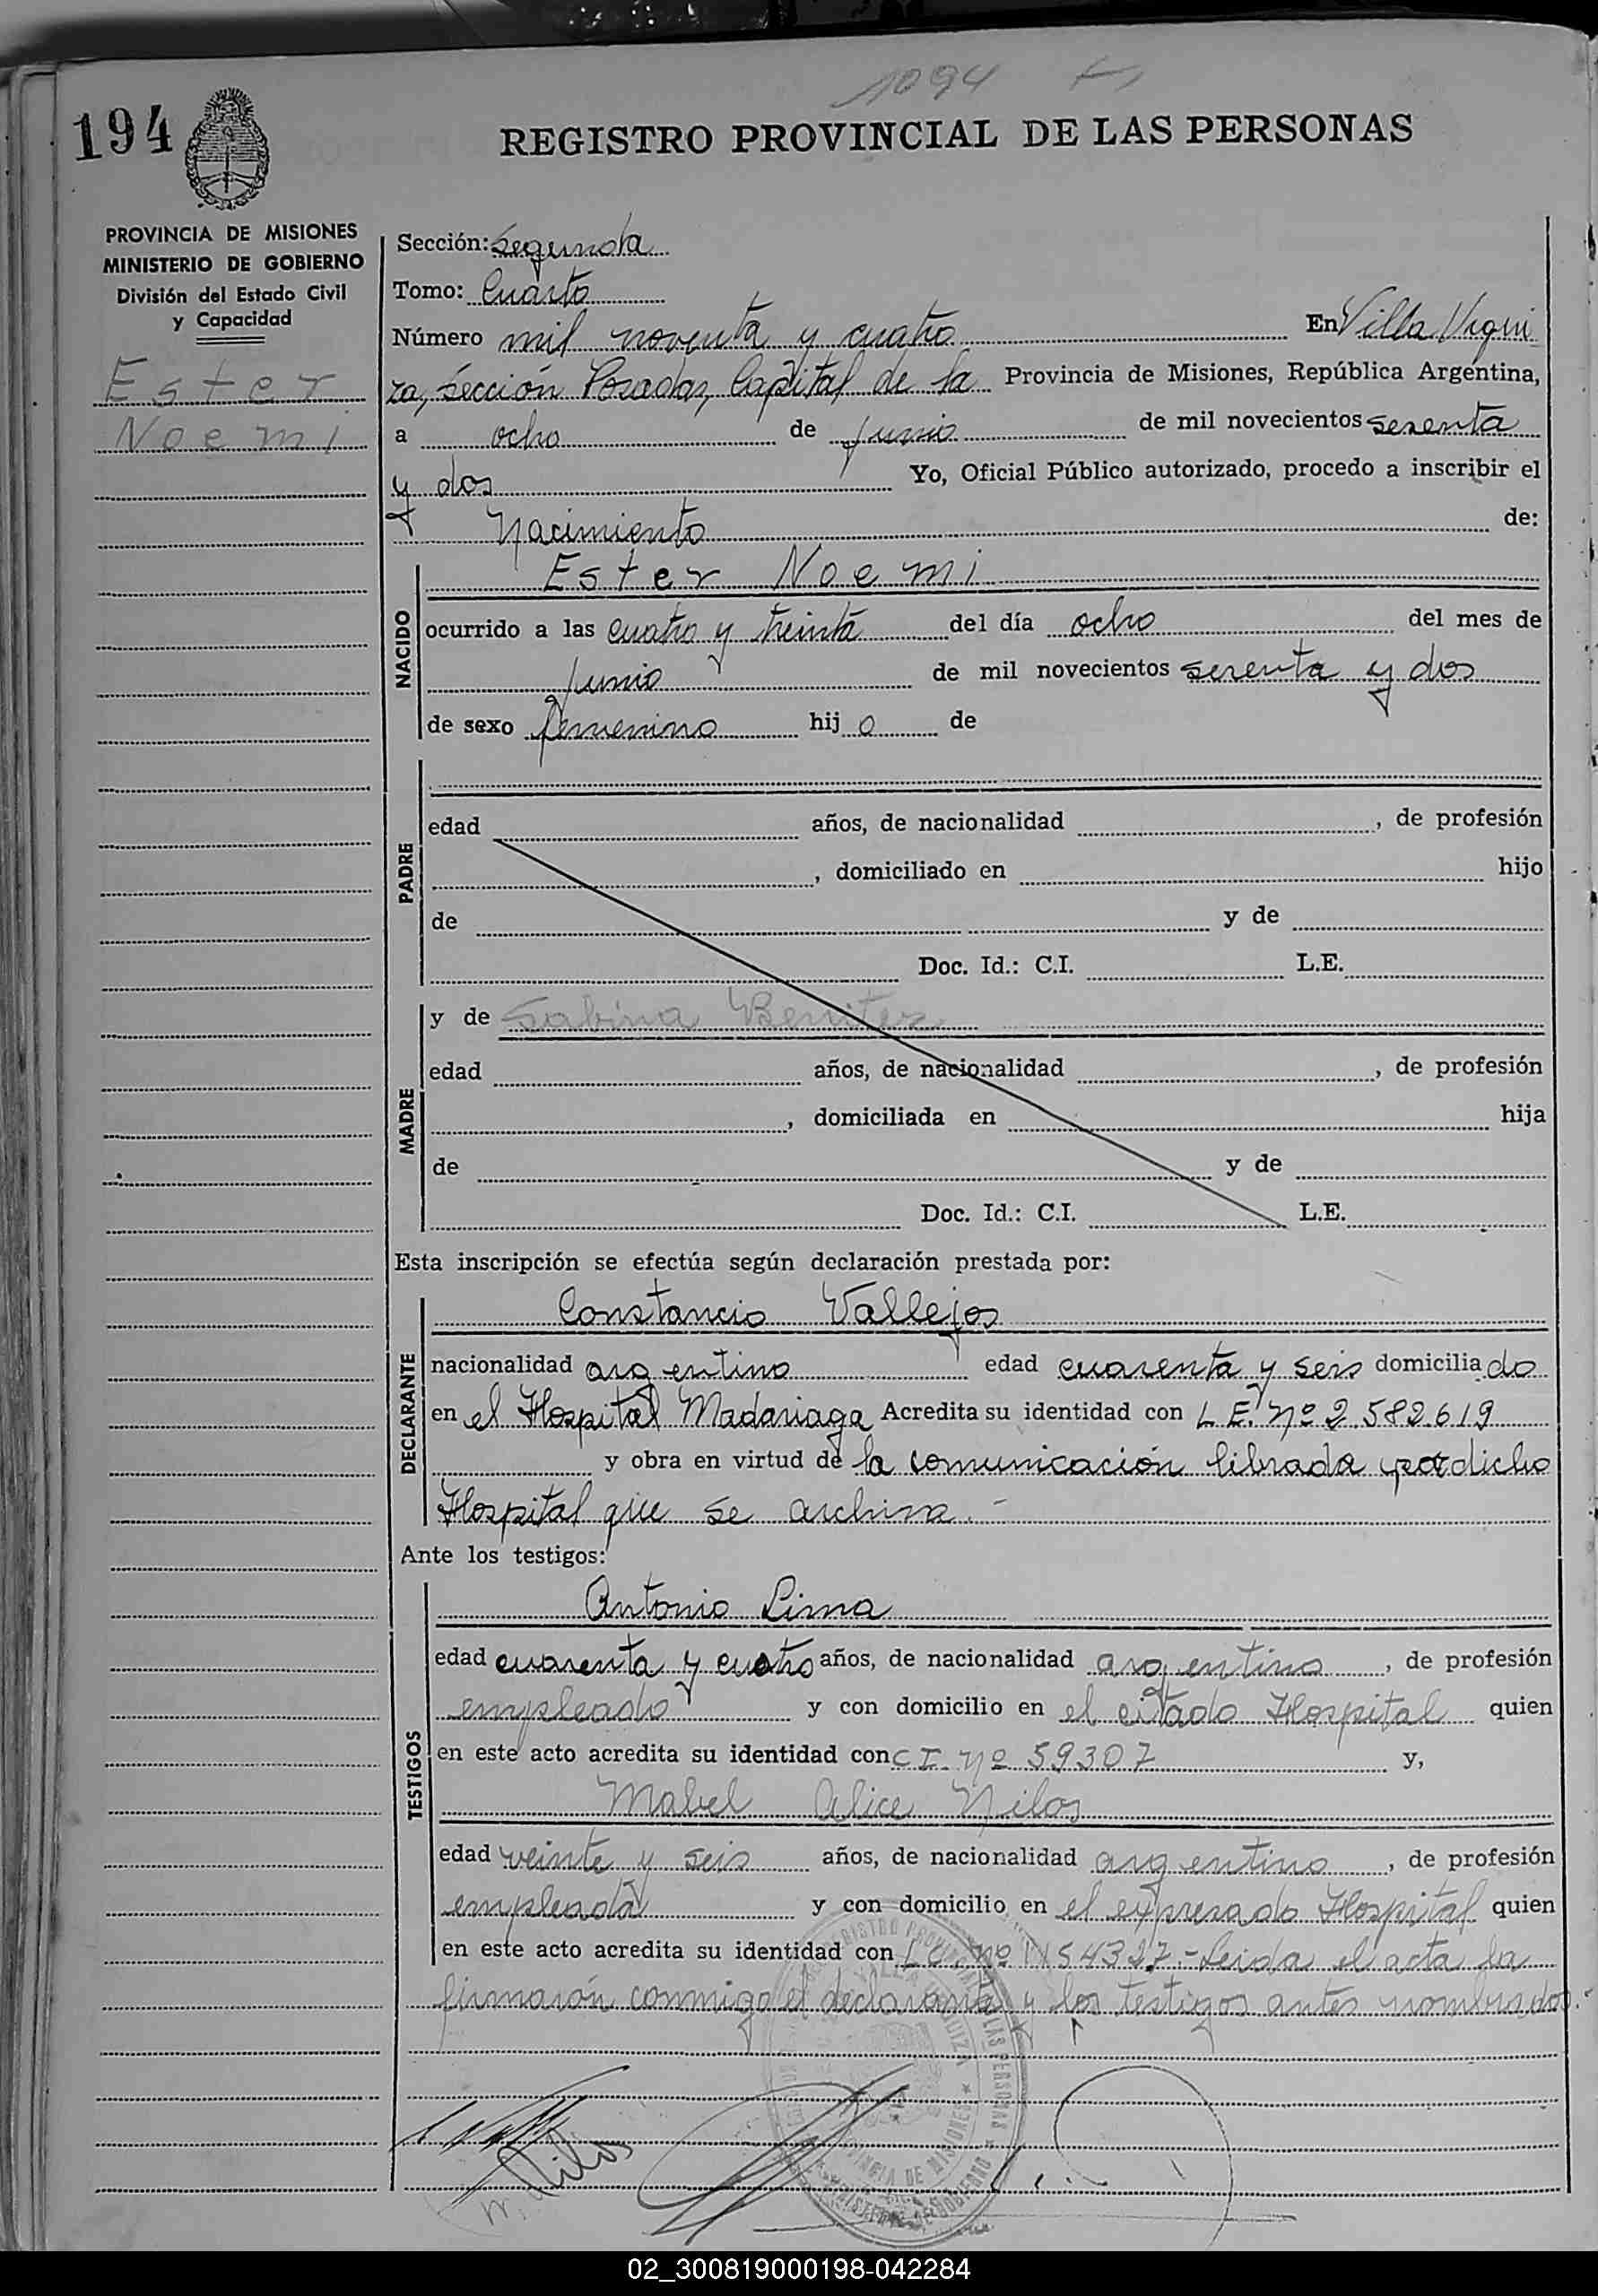 1094
194
REGISTRO PROVINCIAL DE LAS PERSONAS
PROVINCIA DE MISIONES
MINISTERIO DE GOBIERNO
División del Estado Civil
y Capacidad
Ester
Noemi
Sección: Segunda
Tomo: Cuarto
Número mil noventa y cuatro En Villa Urqui
za, Sección Posadas, Capital de la Provincia de Misiones, República Argentina,
a ocho de junio de mil novecientos sesenta
y dos Yo, Oficial Público autorizado, procedo a inscribir el
Nacimiento de:
NACIDO
Ester Noemi
ocurrido a las cuatro y treinta del día ocho del mes de
junio de mil novecientos sesenta y dos
de sexo femenino hij o de
PADRE
edad años, de nacionalidad , de profesión
, domiciliado en hijo
de y de
Doc. Id.: C.I. L.E.
MADRE
y de Sabina Benitez
edad años, de nacionalidad , de profesión
, domiciliada en hija
de y de
Doc. Id.: C.I. L.E.
Esta inscripción se efectúa según declaración prestada por:
DECLARANTE
Constancio Vallejos
nacionalidad argentino edad cuarenta y seis domicilia do
en el Hospital Madariaga Acredita su identidad con L.E. Nº 2.582.619
y obra en virtud de la comunicación librada por dicho
Hospital que se archiva.-
Ante los testigos:
TESTIGOS
Antonio Lima
edad cuarenta y cuatro años, de nacionalidad argentino, de profesión
empleado y con domicilio en el citado Hospital quien
en este acto acredita su identidad con C.I. Nº 59307 y,
Mabel Alice Nilos
edad veinte y seis años, de nacionalidad argentino, de profesión
empleada y con domicilio en el expresado Hospital quien
en este acto acredita su identidad con L.C. Nº 1154327.- Leida el acta la
firmarón conmigo el declarante y los testigos antes nombrados.-
M. Nilos
02_300819000198-042284